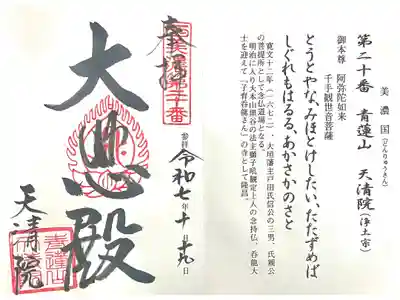 美濃国
第二十番 青蓮山 天清院(浄土宗)
御本尊 阿弥陀如来
千手観世音菩薩
とうとやな、みほとけしたい、たたずめば
しぐれもはるる、あかさかのさと
寛文十二年(一六七二)、大垣藩主戸田氏信公の三男、氏頼公
の菩提所として念仏道場となる。
明治に入り大本山黒谷の法主獅子吼観定上人の念持仏、呑龍大
士を迎えて『子育呑龍さん』の寺として隆昌。
参拝 令和七年十月十九日
奉拝
大悲殿
天清院